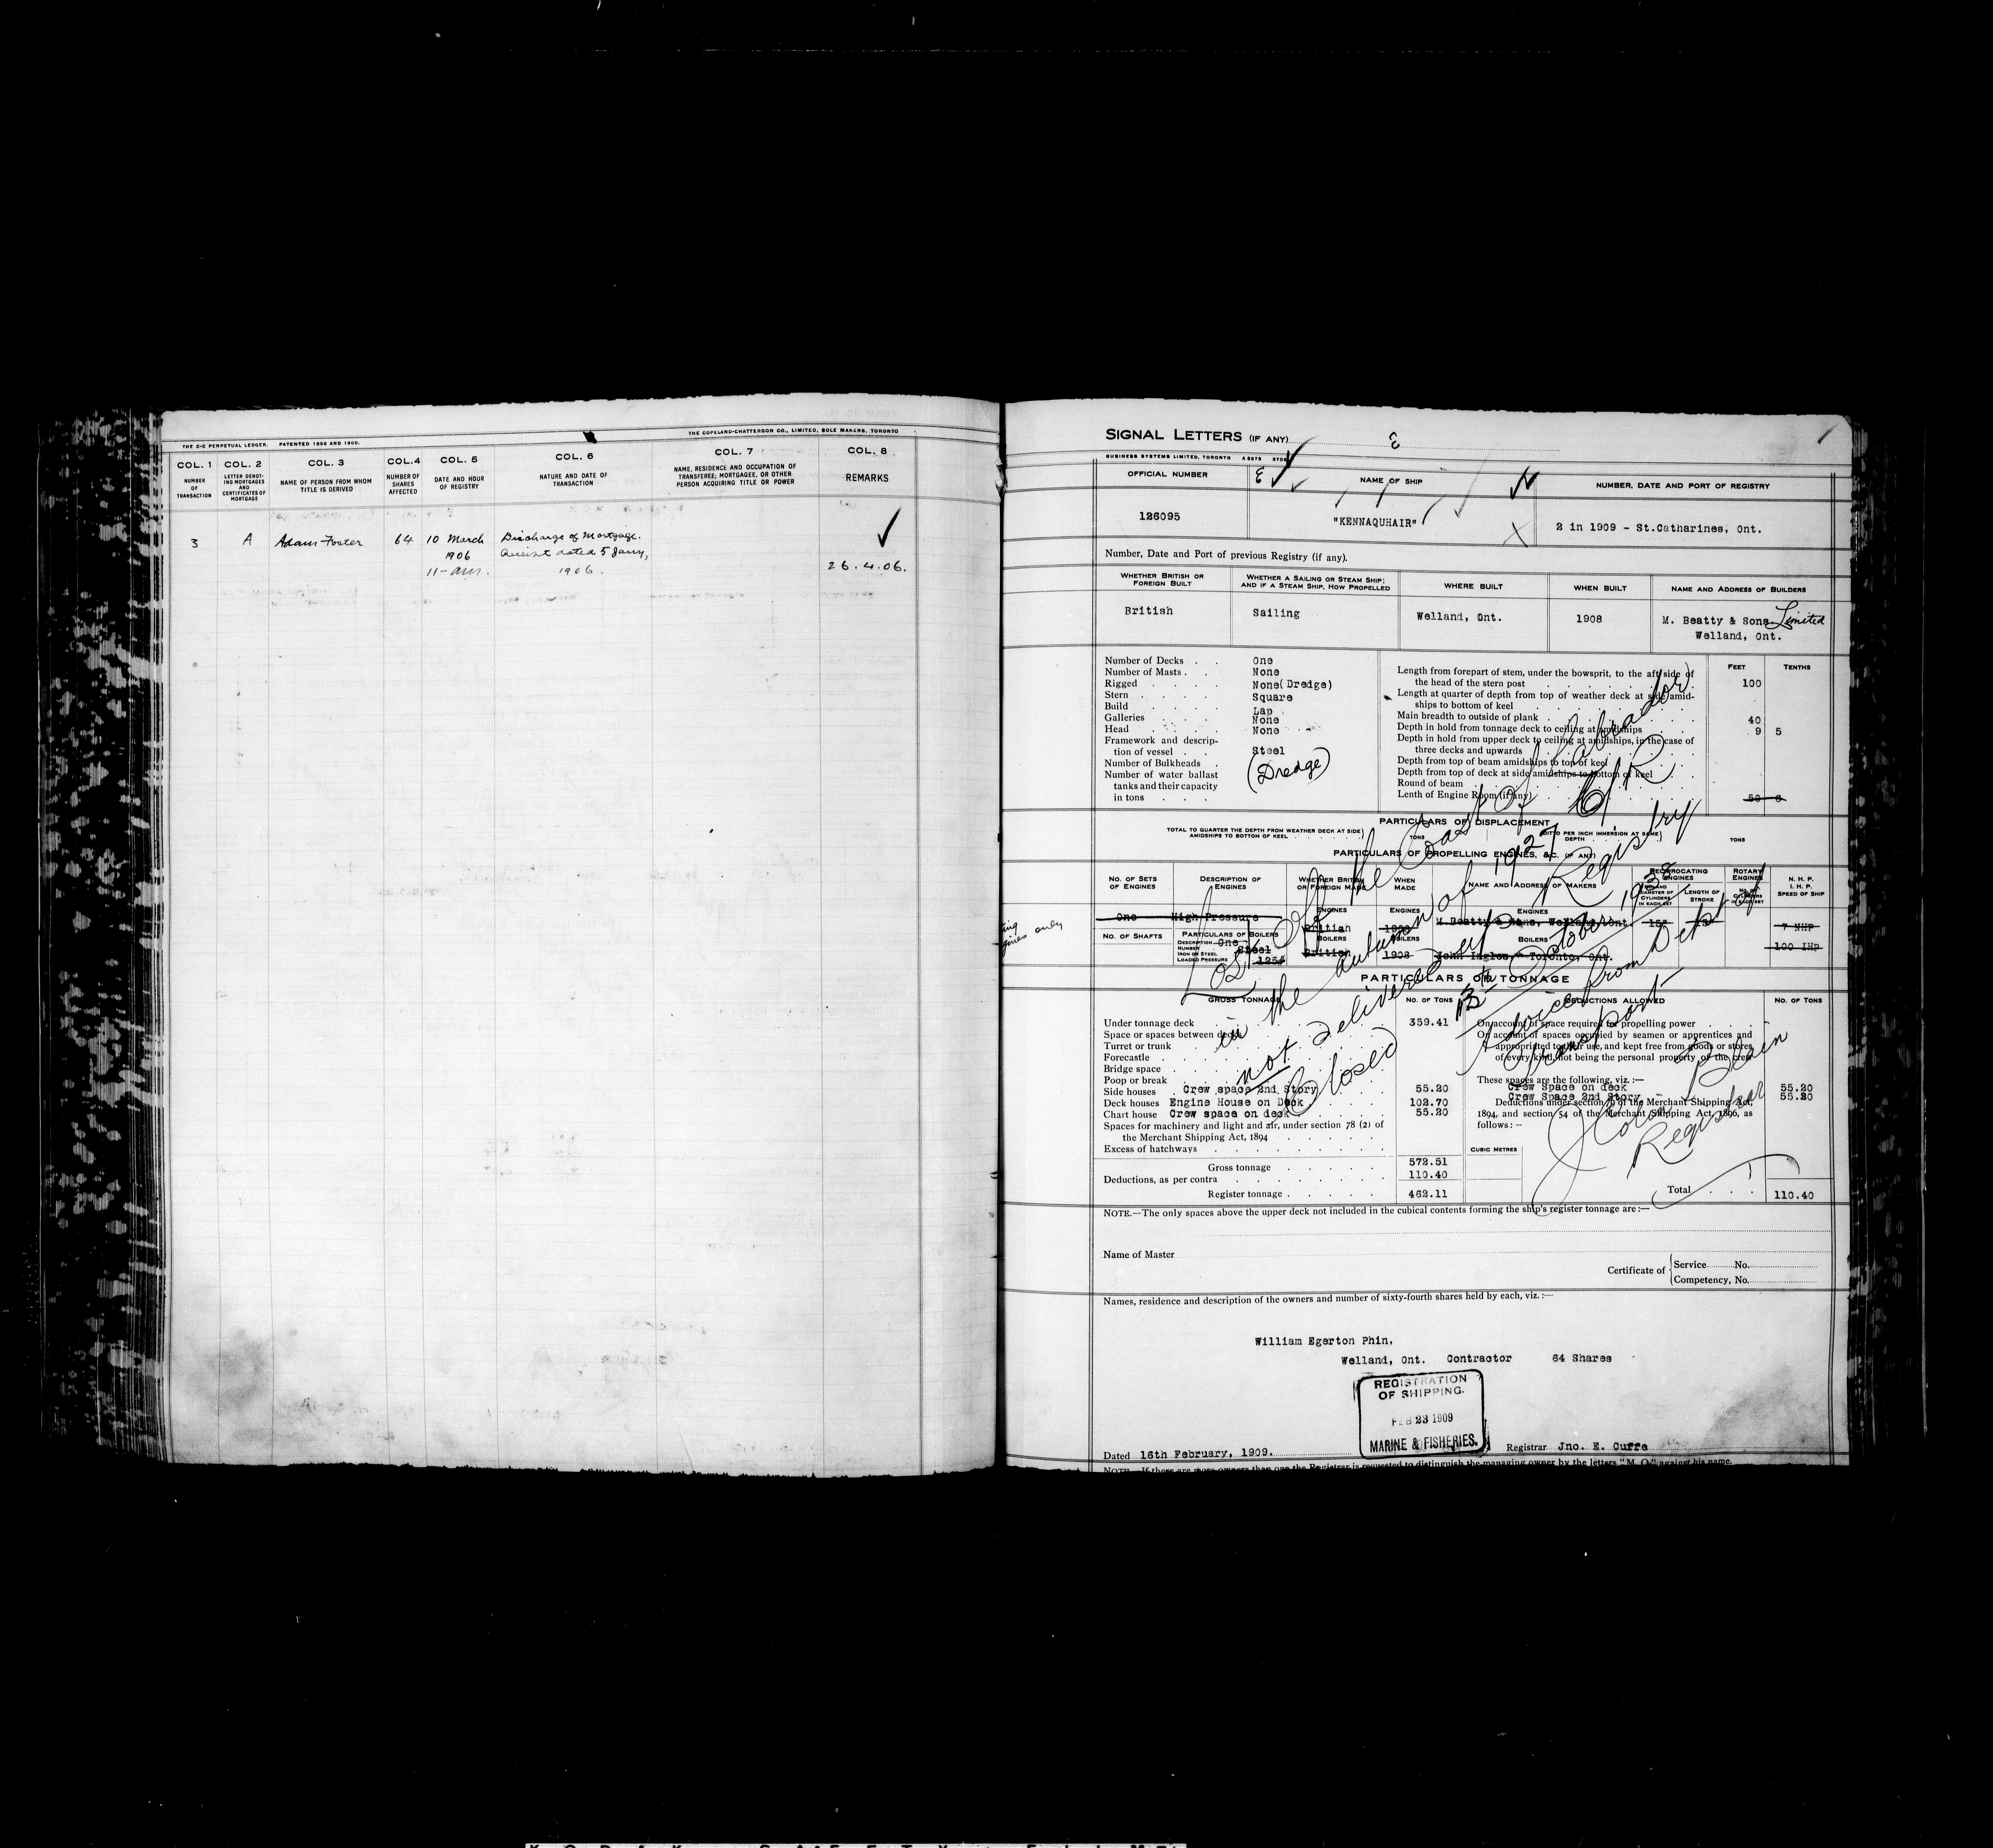 THE C-C PERPETUAL LEDGER. PATENTED 1896 AND 1900.
THE COPELAND-CHATTERSON CO., LIMITED, SOLE MAKERS, TORONTO
COL. 1 COL. 2 COL. 3 COL. 4 COL. 5 COL. 6 COL. 7 COL. 8
NUMBER OF TRANSACTION
LETTER DENOTING MORTGAGES AND CERTIFICATES OF MORTGAGE
NAME OF PERSON FROM WHOM TITLE IS DERIVED
NUMBER OF SHARES AFFECTED
DATE AND HOUR OF REGISTRY
NATURE AND DATE OF TRANSACTION
NAME, RESIDENCE AND OCCUPATION OF TRANSFEREE, MORTGAGEE, OR OTHER PERSON ACQUIRING TITLE OR POWER
REMARKS
3 A Adam Foster 64 10 March Discharge of Mortgage.
1906 Receipt dated 5 Jany,
11-am. 1906. 26.4.06.
SIGNAL LETTERS (IF ANY)
BUSINESS SYSTEMS LIMITED, TORONTO
OFFICIAL NUMBER NAME OF SHIP NUMBER, DATE AND PORT OF REGISTRY
126095 "KENNAQUHAIR" 2 in 1909 - St.Catharines, Ont.
Number, Date and Port of previous Registry (if any).
WHETHER BRITISH OR FOREIGN BUILT
WHETHER A SAILING OR STEAM SHIP; AND IF A STEAM SHIP, HOW PROPELLED
WHERE BUILT
WHEN BUILT
NAME AND ADDRESS OF BUILDERS
British Sailing Welland, Ont. 1908 M. Beatty & Sons Limited
Welland, Ont.
Number of Decks . . One
Number of Masts . . None
Rigged . . . . None(Dredge)
Stern . . . . Square
Build . . . . Lap
Galleries . . . None
Head . . . . None
Framework and description of vessel . . Steel
Number of Bulkheads .
Number of water ballast tanks and their capacity in tons . . .
(Dredge)
FEET TENTHS
Length from forepart of stem, under the bowsprit, to the aft side of the head of the stern post 100
Length at quarter of depth from top of weather deck at side amidships to bottom of keel
Main breadth to outside of plank 40
Depth in hold from tonnage deck to ceiling at amidships 9 5
Depth in hold from upper deck to ceiling at amidships, in the case of three decks and upwards
Depth from top of beam amidships to top of keel
Depth from top of deck at side amidships to bottom of keel
Round of beam
Lenth of Engine Room (if any)
PARTICULARS OF DISPLACEMENT
TOTAL TO QUARTER THE DEPTH FROM WEATHER DECK AT SIDE AMIDSHIPS TO BOTTOM OF KEEL TONS
DITTO PER INCH IMMERSION AT SAME DEPTH TONS
PARTICULARS OF PROPELLING ENGINES, &C. (IF ANY)
No. OF SETS OF ENGINES
DESCRIPTION OF ENGINES
WHETHER BRITISH OR FOREIGN MADE
WHEN MADE
NAME AND ADDRESS OF MAKERS
RECIPROCATING ENGINES
LENGTH OF STROKE
ROTARY ENGINES
N. H. P. I. H. P. SPEED OF SHIP
One High Pressure
ENGINES British 1908 M. Beatty & Sons, Welland Ont. 15" 7 NHP
No. OF SHAFTS PARTICULARS OF BOILERS
One Steel 125# BOILERS British 1908 John Inglos Toronto, Ont. 100 IHP
Lost off the Coast of Labrador
in the autumn of 1927 C/R
not delivered up Registry
Closed 13th October 193
Advice from Dept of
Transport
Colin Blain
Registrar
PARTICULARS OF TONNAGE
GROSS TONNAGE No. OF TONS DEDUCTIONS ALLOWED No. OF TONS
Under tonnage deck 359.41
Space or spaces between decks
Turret or trunk
Forecastle
Bridge space
Poop or break
Side houses Crew space 2nd Story 55.20
Deck houses Engine House on Deck 102.70
Chart house Crew space on deck 55.20
Spaces for machinery and light and air, under section 78 (2) of the Merchant Shipping Act, 1894
Excess of hatchways
Gross tonnage 572.51
Deductions, as per contra 110.40
Register tonnage 462.11
On account of space required for propelling power
On account of spaces occupied by seamen or apprentices and appropriated to their use, and kept free from goods or stores of every kind, not being the personal property of the crew
These spaces are the following, viz. :—
Crew Space on deck 55.20
Crew Space 2nd Story 55.20
Deductions under section 79 of the Merchant Shipping Act, 1894, and section 54 of the Merchant Shipping Act, 1896, as follows : —
CUBIC METRES
Total 110.40
NOTE.—The only spaces above the upper deck not included in the cubical contents forming the ship's register tonnage are:—
Name of Master
Certificate of Service No.
Competency, No.
Names, residence and description of the owners and number of sixty-fourth shares held by each, viz. :—
William Egerton Phin,
Welland, Ont. Contractor 64 Shares
REGISTRATION
OF SHIPPING.
FEB 23 1909
MARINE & FISHERIES.
Dated 16th February, 1909. Registrar Jno. E. Cuffe
NOTE. If there are more owners than one the Registrar is requested to distinguish the managing owner by the letters "M. O." against his name.